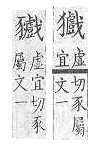 虛
宜
切豕屬
文一
虛宜切豕
屬文一